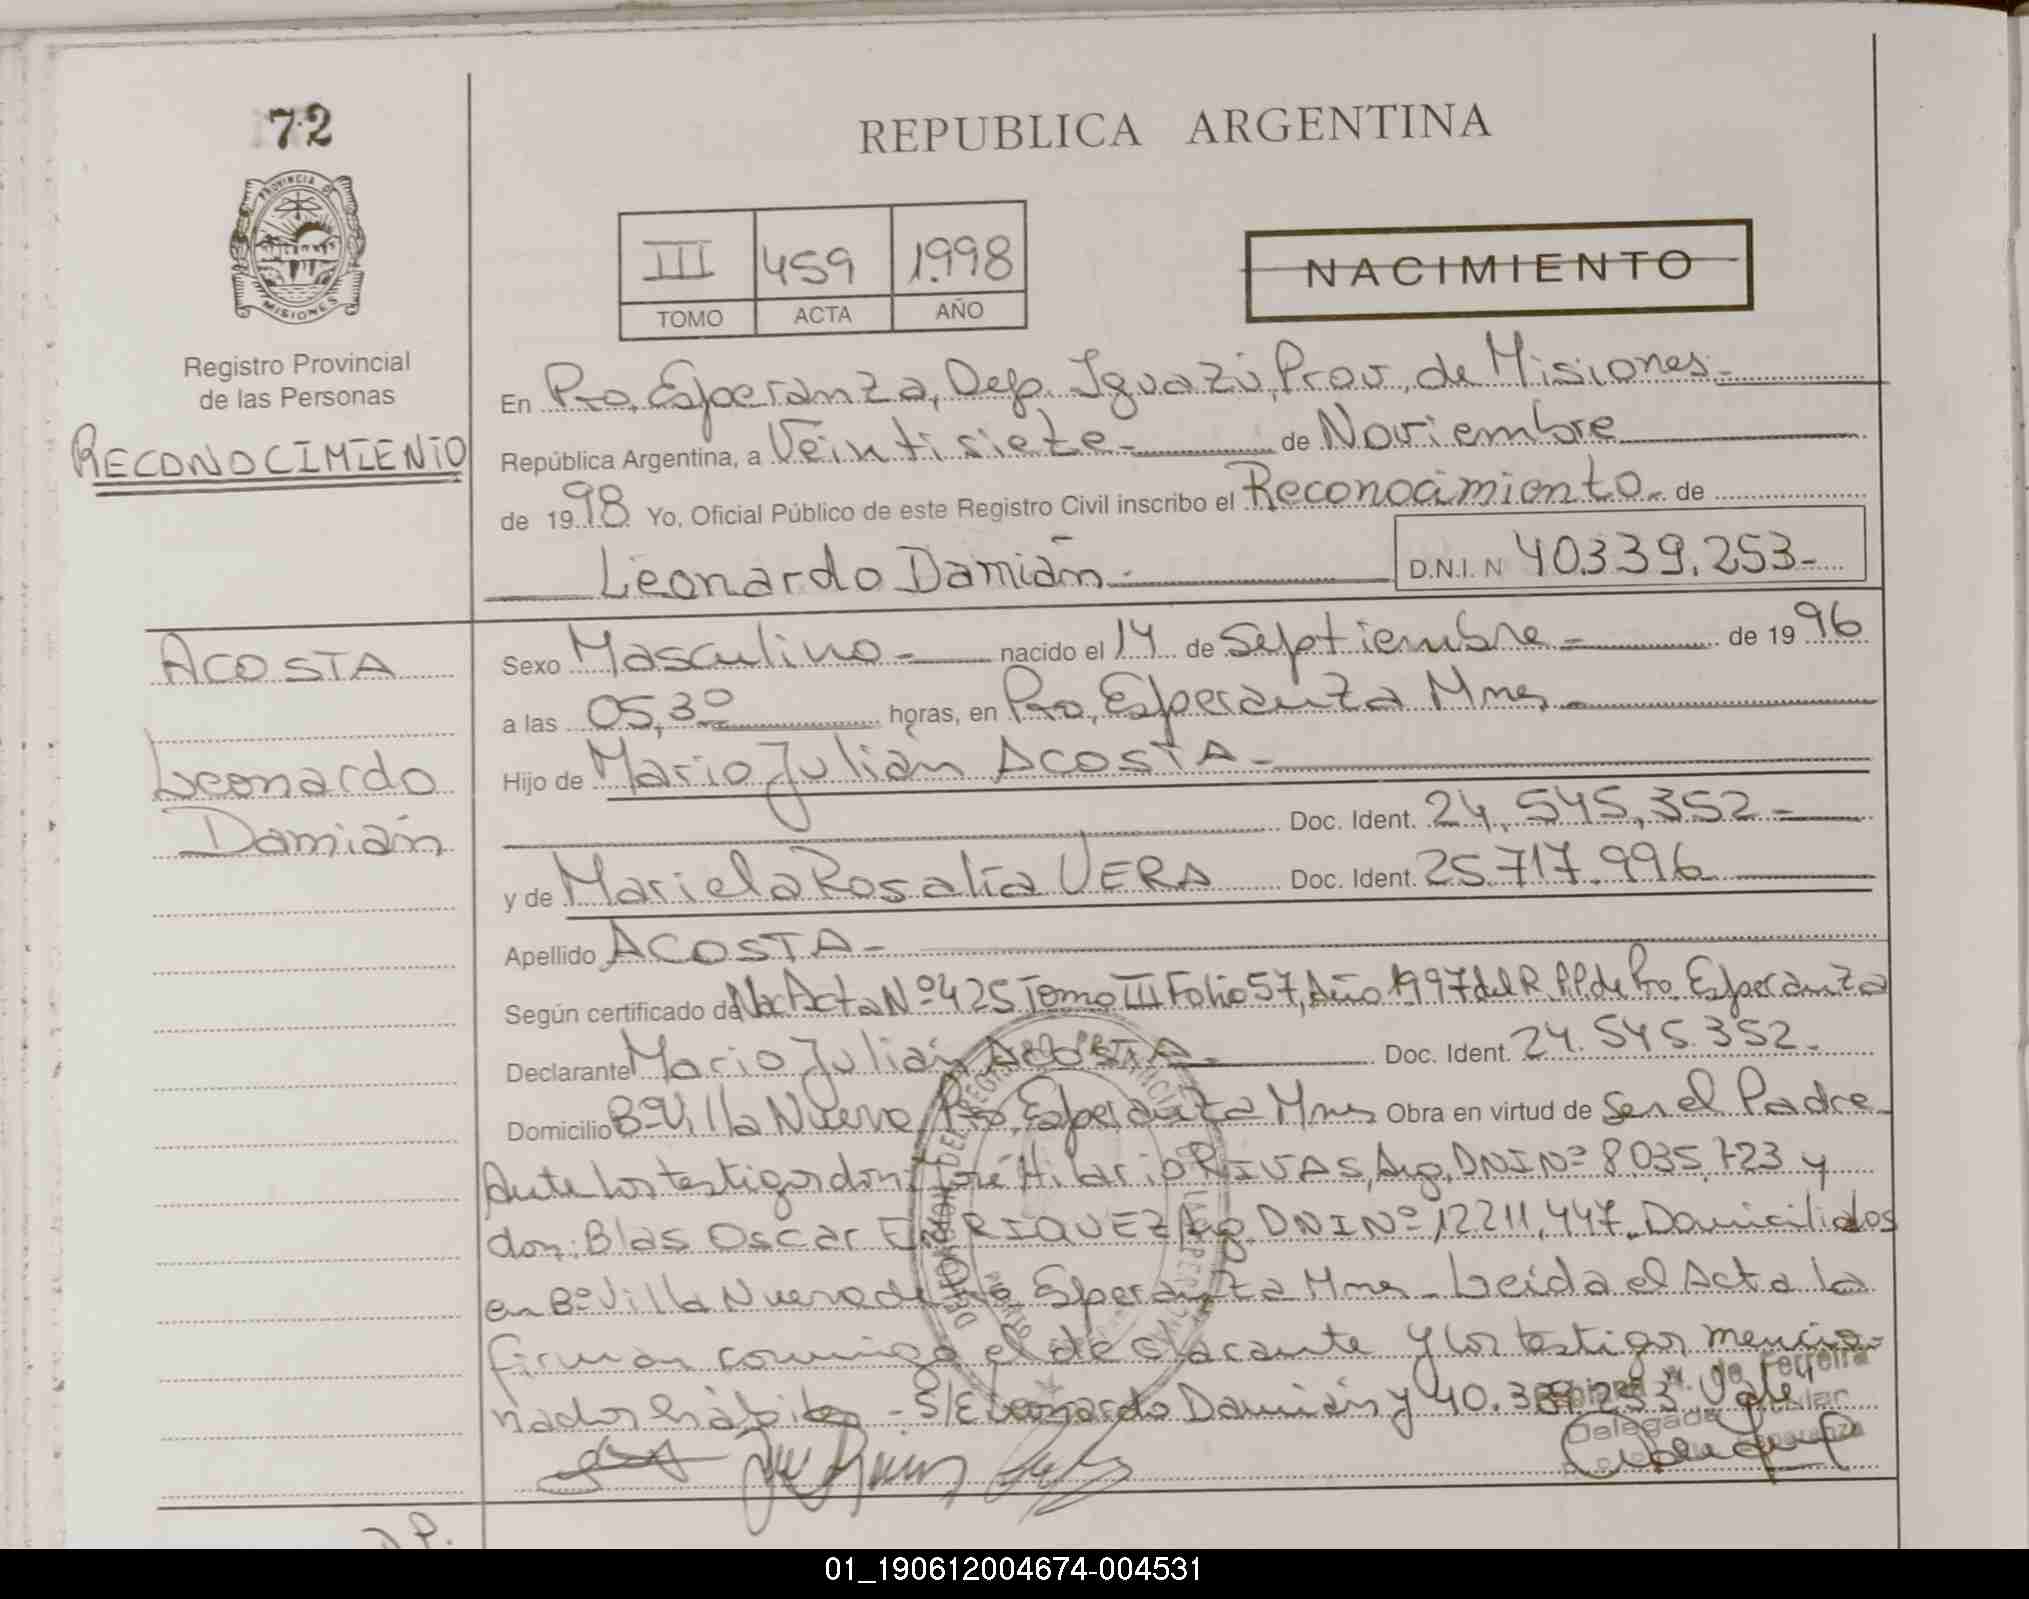 72
REPUBLICA ARGENTINA
PROVINCIA DE
MISIONES
III 459 1.998
TOMO ACTA AÑO
NACIMIENTO
Registro Provincial
de las Personas
RECONOCIMIENTO
En Pto. Esperanza, Dep. Iguazú, Prov. de Misiones.-
República Argentina, a Veintisiete.- de Noviembre
de 1998 Yo, Oficial Público de este Registro Civil inscribo el Reconocimiento.- de
Leonardo Damián.- D.N.I. N 40.339.253-
ACOSTA
Leonardo
Damián
Sexo Masculino.- nacido el 14 de Septiembre.- de 1996
a las 05,30 horas, en Pto. Esperanza Mnes.-
Hijo de Mario Julián ACOSTA.-
Doc. Ident. 24.545.352.-
y de Mariela Rosalía VERA Doc. Ident. 25.717.996
Apellido ACOSTA-
Según certificado de Nac. Acta Nº 425 Tomo III Folio 57, Año 1997 del R.P.P. de Pto. Esperanza
Declarante Mario Julián ACOSTA.- Doc. Ident. 24.545.352.-
Domicilio Bº Villa Nueva Pto. Esperanza Mnes Obra en virtud de Ser el Padre
Ante los testigos don: José Hilario RIVAS, Arg. DNI Nº 8.035.723 y
don: Blas Oscar ENRIQUEZ Arg. DNI Nº 12.211.447. Domiciliados
en Bº Villa Nueva de Pto. Esperanza Mnes.- Leida el Acta la
firman conmigo el declarante y los testigos mencio-
nados hábiles.- S/E Leonardo Damián y 40.339.253 Vale
de Ferreira
Delegada Titular
Esperanza
01_190612004674-004531